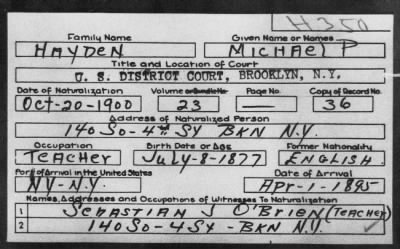 H350
Family Name Given Name or Names
HAYDEN MICHAEL P
Title and Location of Court
U. S. DISTRICT COURT, BROOKLYN, N.Y.
Date of Naturalization Volume or Bundle No. Page No. Copy of Record No.
Oct-20-1900 23 — 36
Address of Naturalized Person
140 So-4th St BKN N.Y.
Occupation Birth Date or Age Former Nationality
TEACHER July-8-1877 ENGLISH
Port of Arrival in the United States Date of Arrival
NY-N.Y. Apr-1-1895
Names, Addresses and Occupations of Witnesses To Naturalization
1 SEBASTIAN J O'BRIEN (TEACHER)
2 140 So-4 St-BKN N.Y.